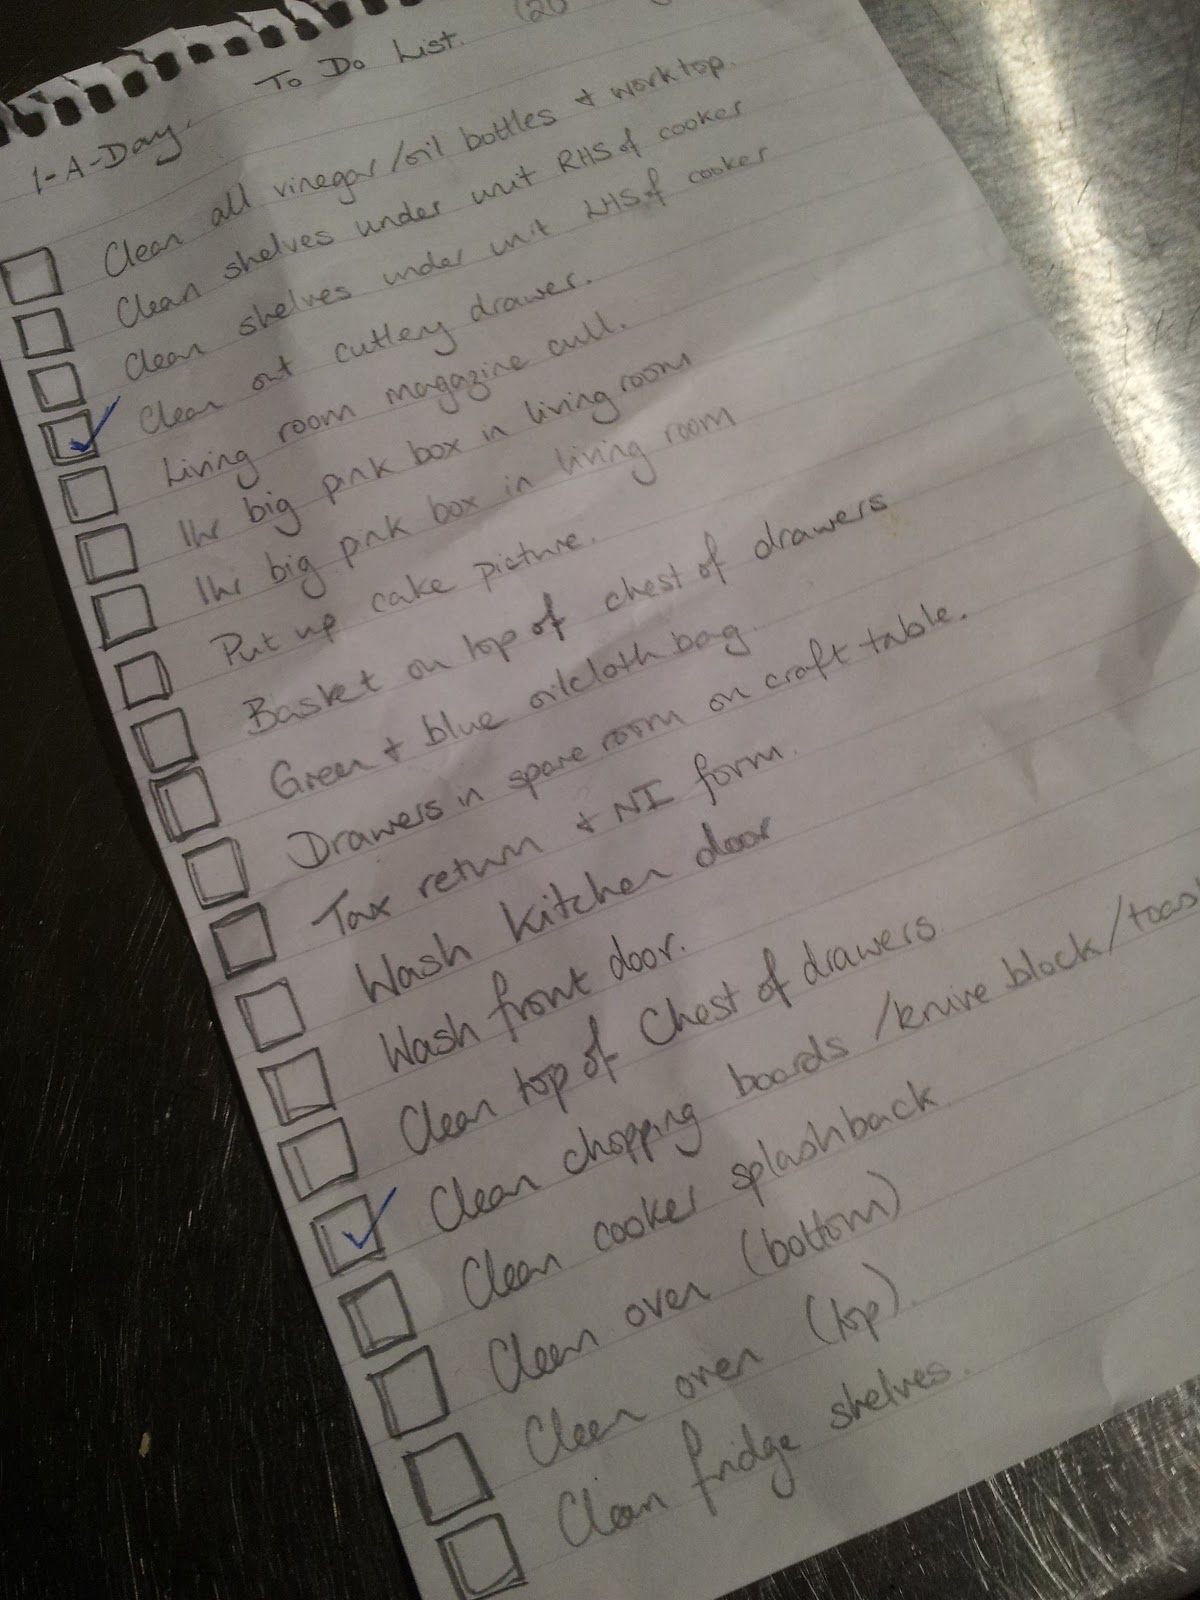 (20
To Do List.
1-A-Day.
Clean all vinegar/oil bottles + worktop.
Clean shelves under unit RHS of cooker
Clean shelves under unit LHS of cooker
Clean out cutlery drawer.
Living room magazine cull.
1hr big pink box in living room
1hr big pink box in living room
Put up cake picture.
Basket on top of chest of drawers
Green + blue oilcloth bag.
Drawers in spare room on craft table.
Tax return + NI form.
Wash kitchen door
Wash front door.
Clean top of Chest of drawers
Clean chopping boards /knive block/toas
Clean cooker splashback
Clean oven (bottom)
Clean oven (top).
Clean fridge shelves.